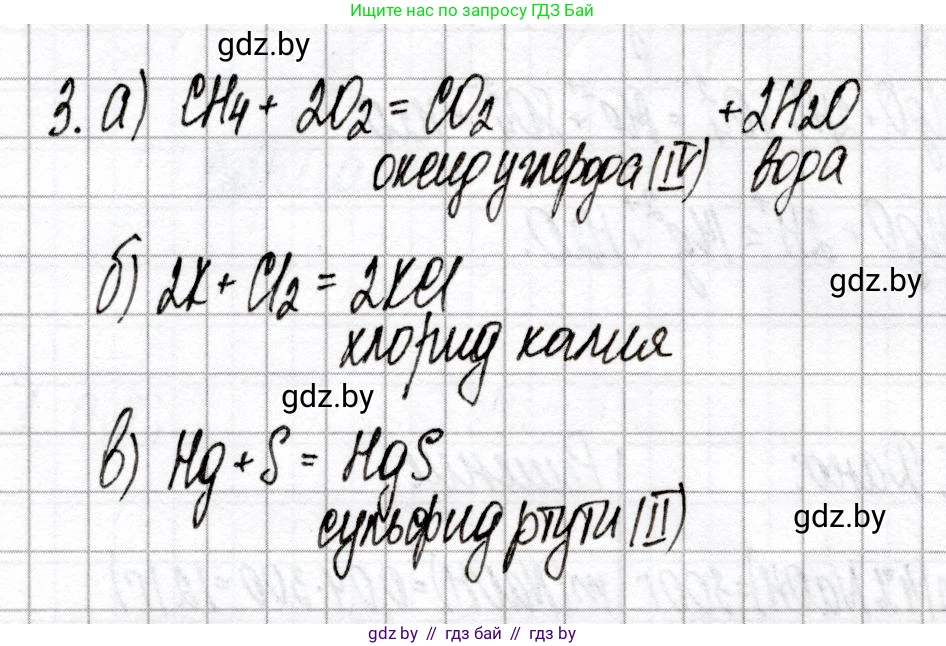 Ищите нас по запросу ГДЗ Бай
gdz.by
3. а) CH4 + 2O2 = CO2 + 2H2O
оксид углерода (IV) вода
б) 2K + Cl2 = 2KCl
gdz.by
хлорид калия
gdz.by
в) Hg + S = HgS
сульфид ртути (II)
gdz.by
gdz.by // гдз бай // гдз by